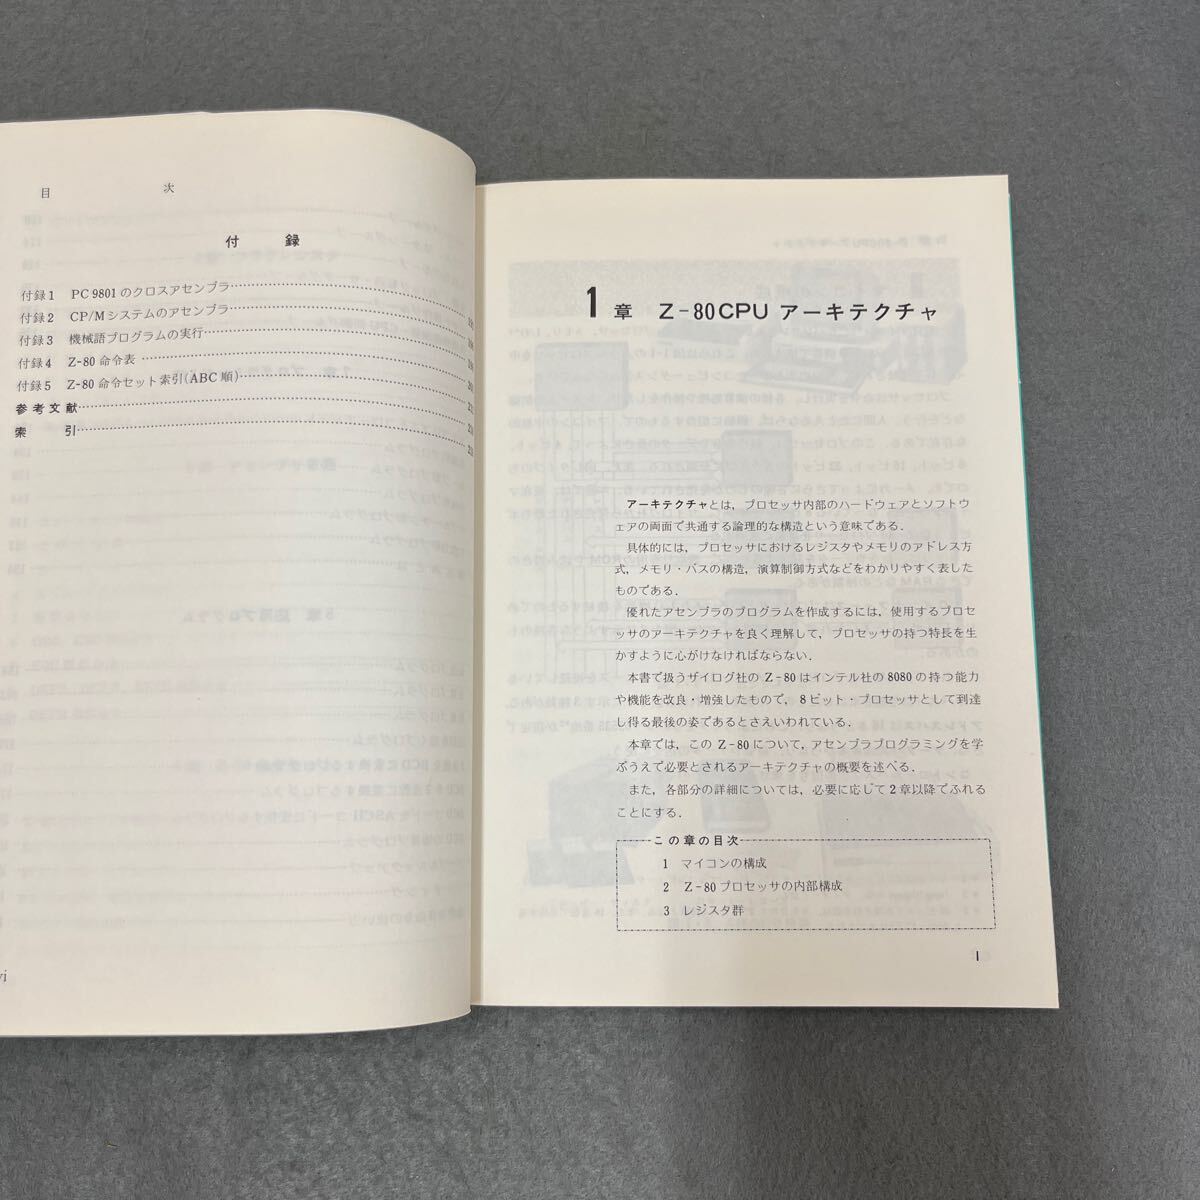 目次
付録
付録1 PC 9801のクロスアセンブラ
付録2 CP/Mシステムのアセンブラ
付録3 機械語プログラムの実行
付録4 Z-80 命令表
付録5 Z-80 命令セット索引(ABC順)
参考文献
索引
vi
1章 Z-80CPU アーキテクチャ
アーキテクチャとは，プロセッサ内部のハードウェアとソフトウ
ェアの両面で共通する論理的な構造という意味である．
具体的には，プロセッサにおけるレジスタやメモリのアドレス方
式，メモリ・バスの構造，演算制御方式などをわかりやすく表した
ものである．
優れたアセンブラのプログラムを作成するには，使用するプロセ
ッサのアーキテクチャを良く理解して，プロセッサの持つ特長を生
かすように心がけなければならない．
本書で扱うザイログ社の Z-80 はインテル社の 8080 の持つ能力
や機能を改良・増強したもので，8ビット・プロセッサとして到達
し得る最後の姿であるとさえいわれている．
本章では，この Z-80 について，アセンブラプログラミングを学
ぶうえで必要とされるアーキテクチャの概要を述べる．
また，各部分の詳細については，必要に応じて2章以降でふれる
ことにする．
この章の目次
1 マイコンの構成
2 Z-80 プロセッサの内部構成
3 レジスタ群
1